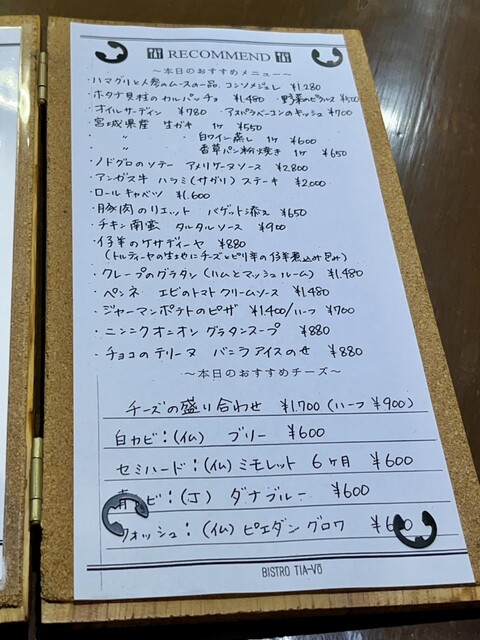 RECOMMEND
～本日のおすすめメニュー～
・ハマグリと人参のムースの一品 コンソメジュレ ¥1,280
・ホタテ貝柱のカルパッチョ ¥1,480 ・野菜のピクルス ¥500
・オイルサーディン ¥780 ・アスパラベーコンのキッシュ ¥700
・宮城県産 生ガキ 1ヶ ¥550
・ 〃 白ワイン蒸し 1ヶ ¥600
・ 〃 香草パン粉焼き 1ヶ ¥650
・ノドグロのソテー アメリケーヌソース ¥2,800
・アンガス牛 ハラミ(サガリ)ステーキ ¥2,000
・ロールキャベツ ¥1,600
・豚肉のリエット バゲット添え ¥650
・チキン南蛮 タルタルソース ¥900
・仔羊のケサディーヤ ¥880
(トルティーヤの生地にチーズとピリ辛の仔羊煮込み包み)
・クレープのグラタン(ハムとマッシュルーム) ¥1,480
・ペンネ エビのトマトクリームソース ¥1,480
・ジャーマンポテトのピザ ¥1,400/ハーフ ¥700
・ニンニクオニオングラタンスープ ¥880
・チョコのテリーヌ バニラアイスのせ ¥880
～本日のおすすめチーズ～
チーズの盛り合わせ ¥1,700 (ハーフ ¥900)
白カビ:(仏) ブリー ¥600
セミハード:(仏) ミモレット 6ヶ月 ¥600
青カビ:(丁) ダナブルー ¥600
ウォッシュ:(仏) ピエダングロワ ¥600
BISTRO TIA-VÖ